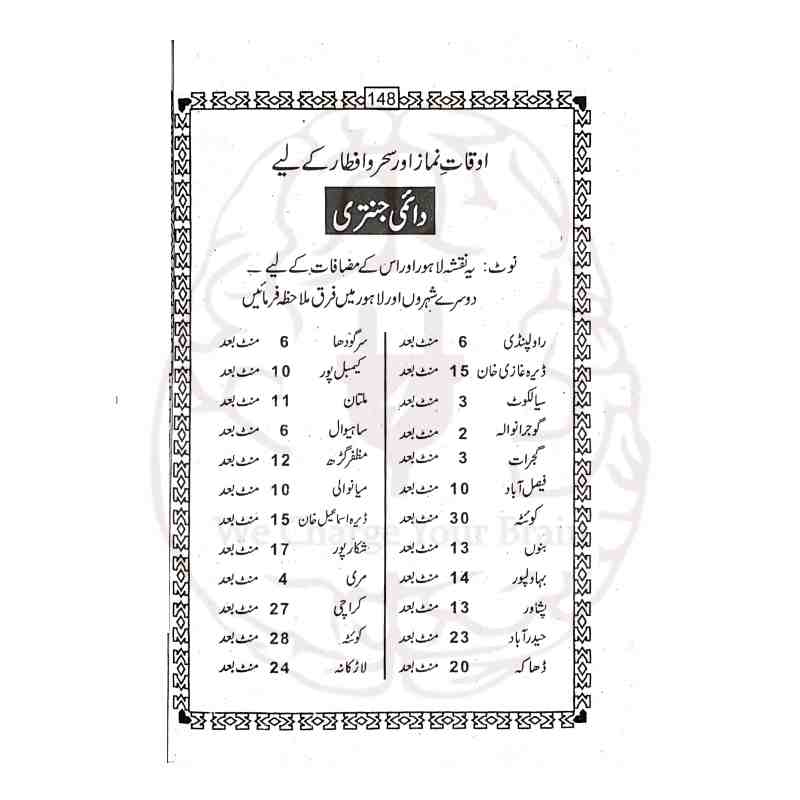 148
اوقاتِ نماز اور سحر و افطار کے لیے
دائمی جنتری
نوٹ: یہ نقشہ لاہور اور اس کے مضافات کے لیے ۔
دوسرے شہروں اور لاہور میں فرق ملاحظہ فرمائیں
راولپنڈی 6 منٹ بعد
ڈیرہ غازی خان 15 منٹ بعد
سیالکوٹ 3 منٹ بعد
گوجرانوالہ 2 منٹ بعد
گجرات 3 منٹ بعد
فیصل آباد 10 منٹ بعد
کوئٹہ 30 منٹ بعد
بنوں 13 منٹ بعد
بہاولپور 14 منٹ بعد
پشاور 13 منٹ بعد
حیدرآباد 23 منٹ بعد
ڈھاکہ 20 منٹ بعد
سرگودھا 6 منٹ بعد
کیمبل پور 10 منٹ بعد
ملتان 11 منٹ بعد
ساہیوال 6 منٹ بعد
مظفر گڑھ 12 منٹ بعد
میانوالی 10 منٹ بعد
ڈیرہ اسماعیل خان 15 منٹ بعد
شکارپور 17 منٹ بعد
مری 4 منٹ بعد
کراچی 27 منٹ بعد
کوئٹہ 28 منٹ بعد
لاڑکانہ 24 منٹ بعد
We Change Your Brain